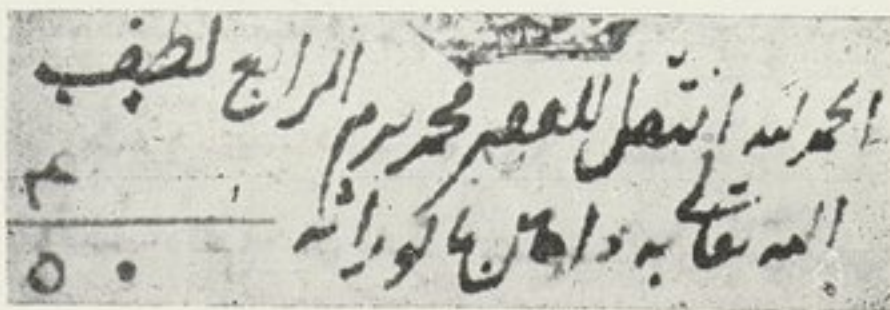 الحمد لله انتقل للفقير محمد بيرم الرابع لطف
الله تعالى به بالوراثه
٥٠